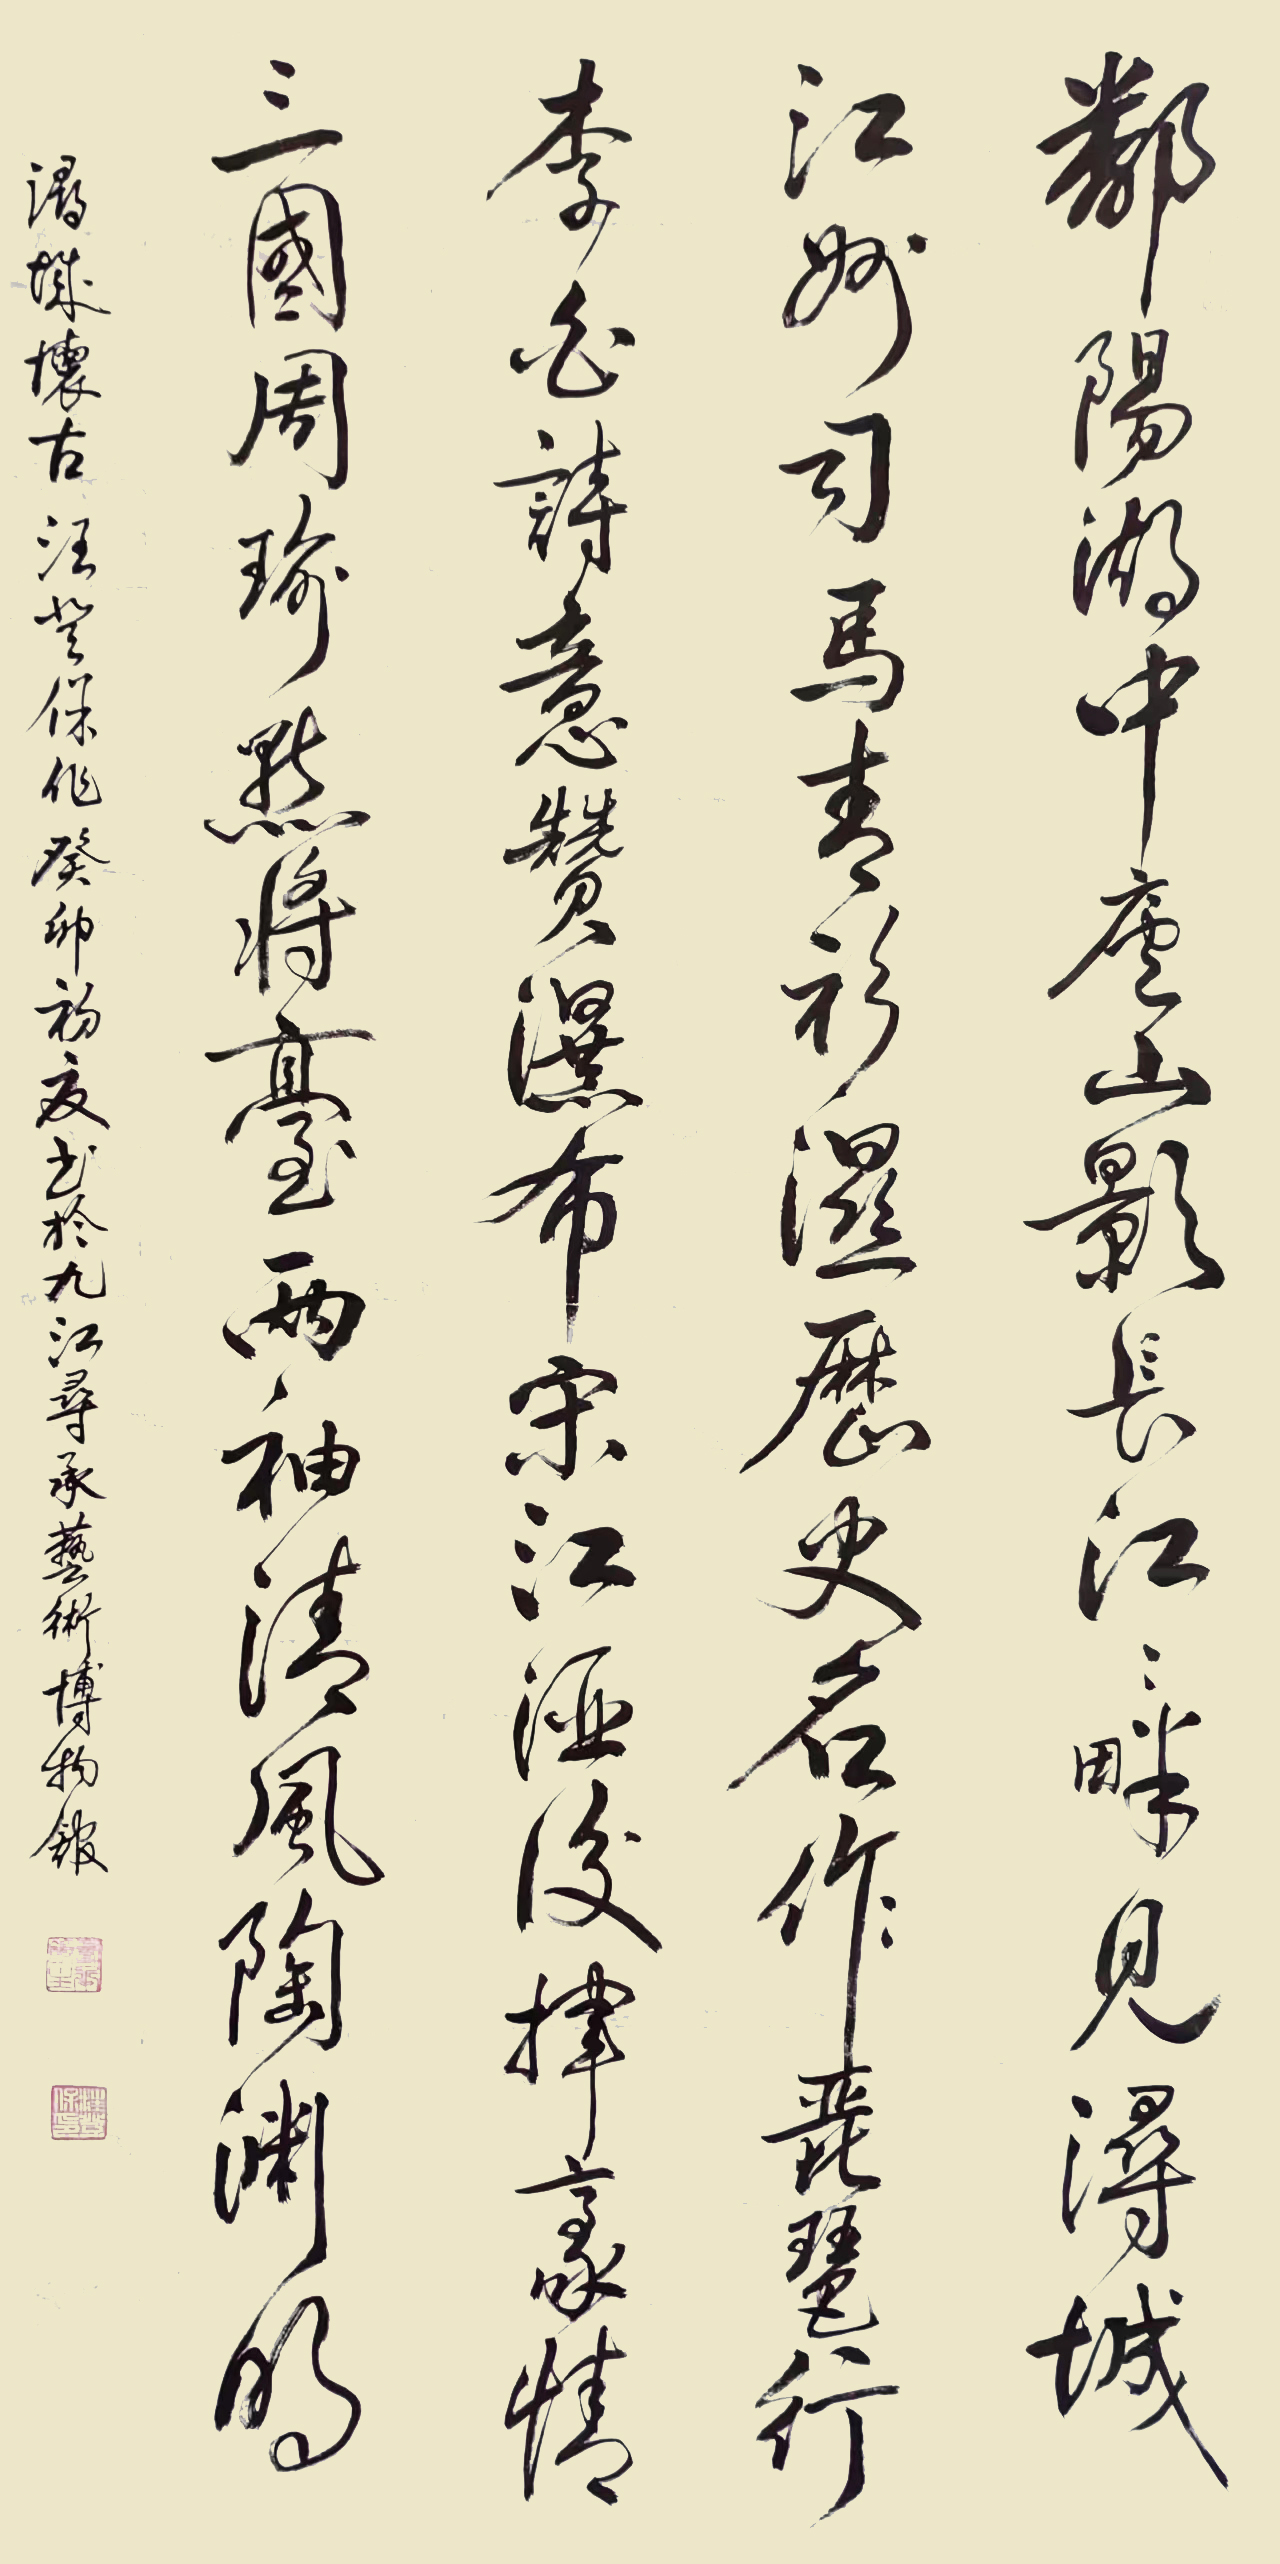 鄱陽湖中廬山影長江畔見潯城
江州司馬青衫濕歷史名作琵琶行
李白詩意贊瀑布宋江酒後揮豪情
三國周瑜點將臺兩袖清風陶淵明
潯城懷古 汪登保作癸卯初夏書於九江尋承藝術博物館